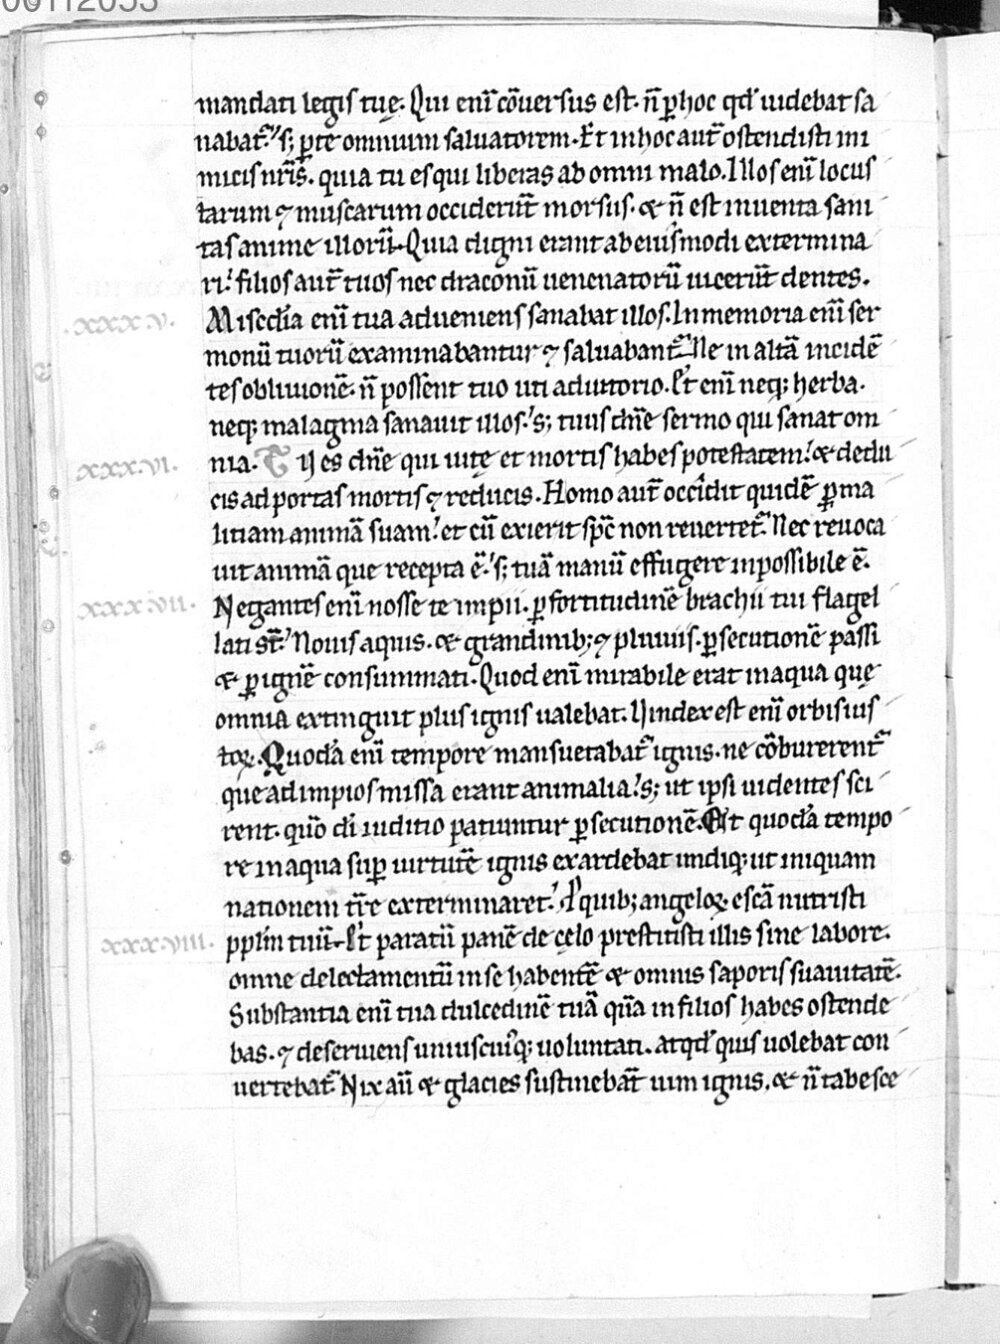 mandati legis tuę. Qui eni̅ co̅uersus est. n̅ ꝑ hoc qd̕ uidebat sa
nabat᷑. s; ꝑ te omnium saluatorem. Et in hoc aut̅ ostendisti ini
micis nr̅is. quia tu es qui liberas ab omni malo. Illos eni̅ locus
tarum ⁊ muscarum occideru̅t morsus. & n̅ est inuenta sani
tas anime illoru̅. Quia digni erant ab eiusmodi extermina
ri. filios aut̅ tuos nec draconu̅ uenenatoru̅ uiceru̅t dentes.
.xxx.v.
Misedi̅a eni̅ tua adueniens sanabat illos. In memoria eni̅ ser
monu̅ tuoru̅ examinabantur ⁊ saluabant᷑. Ne in alta̅ incide̅
tes obliuione̅. n̅ possent tuo uti adiutorio. Et eni̅ neq; herba.
neq; malagma sanauit illos. s; tuus dn̅e sermo qui sanat om
.xxx.vi.
nia. Tu es dn̅e qui uitę et mortis habes potestatem. & dedu
cis ad portas mortis ⁊ reducis. Homo aut̅ occidit quide̅ ꝑ ma
litiam anima̅ suam. et cu̅ exierit sp̅c non reuertet᷑. Nec reuoca
uit anima̅ que recepta e̅. s; tua̅ manu̅ effugere inpossibile e̅.
.xxx.vii.
Negantes eni̅ nosse te impii. ꝑ fortitudine̅ brachii tui flagel
lati st̅. Nouis aquis. & grandinib; ⁊ pluuiis. ꝑsecutione̅ passi
& ꝑ igne̅ consummati. Quod eni̅ mirabile erat in aqua quę
omnia extinguit plus ignis ualebat. Uindex est eni̅ orbis ius
toꝝ. Quoda̅ eni̅ tempore mansuetabat᷑ ignis. ne co̅burerent᷑
que ad impios missa erant animalia. s; ut ipsi uidentes sci
rent. quo̅ di̅ iuditio patiuntur ꝑsecutione̅. Et quoda̅ tempo
re in aqua suꝑ uirtute̅ ignis exardebat undiq; ut iniquam
nationem tr̅e exterminaret. P quib; angeloꝝ esca̅ nutristi
.xxx.viii.
ppl̅m tuu̅. Et paratu̅ pane̅ de cęlo prestitisti illis sine labore.
omne delectamentu̅ in se habente̅ & omnis saporis suauitate̅.
Substantia eni̅ tua dulcedine̅ tua̅ qu̅a in filios habes ostende
bas. ⁊ deseruiens uniuscuiq; uoluntati. at qd̕ quis uolebat con
uertebat᷑. Nix au̅ & glacies sustineba̅t uim ignis. & n̅ tabesce